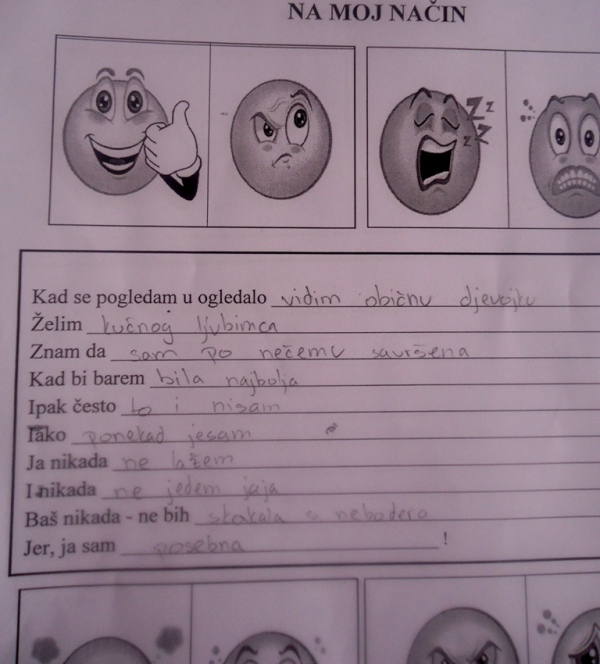 NA MOJ NAČIN
z z
z z
Kad se pogledam u ogledalo vidim običnu djevojku
Želim kućnog ljubimca
Znam da sam po nečemu savršena
Kad bi barem bila najbolja
Ipak često to i nisam
Iako ponekad jesam
Ja nikada ne lažem
I nikada ne jedem jaja
Baš nikada - ne bih skakala s nebodera
Jer, ja sam posebna !